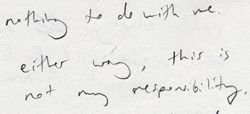 nothing to do with me.
either way, this is
not my responsibility.